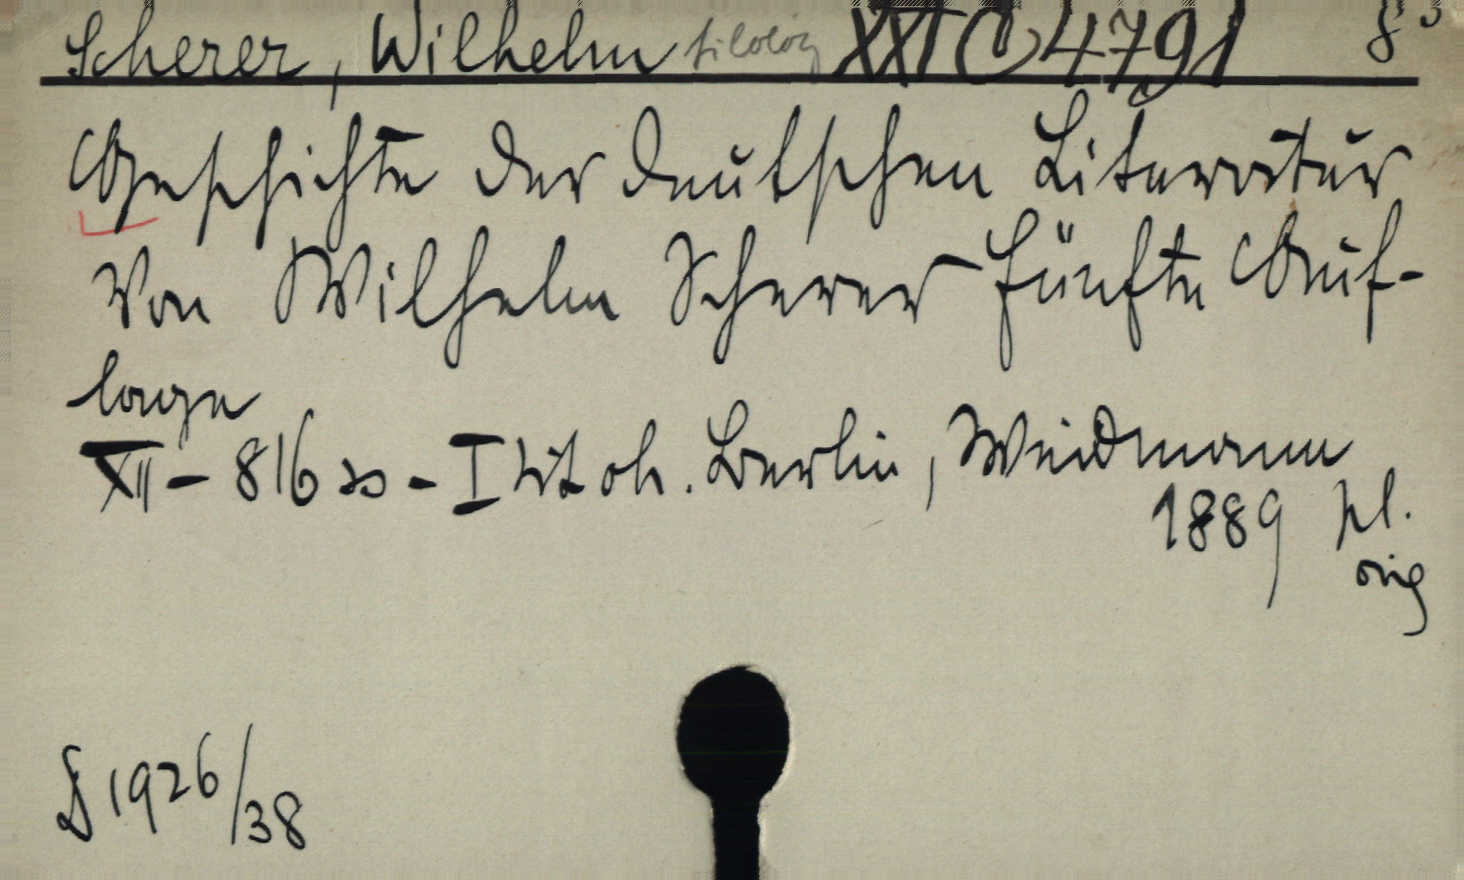 Scherer, Wilhelm filolog XXI C 4791 8°
Geschichte der deutschen Literatur
Von Wilhelm Scherer Fünfte Auf-
lage
XII - 816 ss - I tit ob. Berlin, Weidmann
1889 pl.
orig
1926/38